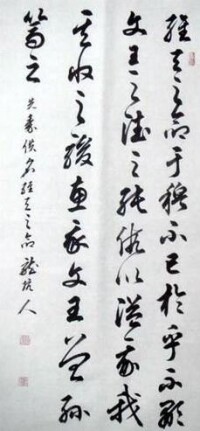 維天之命于穆不已於乎不顯
文王之德之純假以溢我我
其收之駿惠我文王曾孫
篤之
維天之命 人